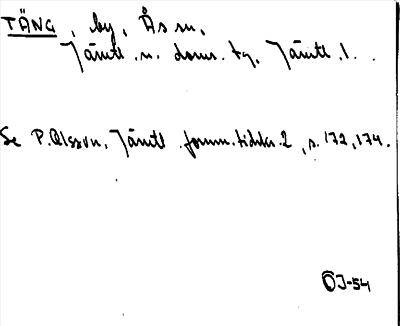 TÄNG, by, Ås sn,
Jämtl. n. doms. tg, Jämtl. l.
Se P. Olsson, Jämtl. fornm. tidskr. 2, s. 172, 174.
ÖJ-54